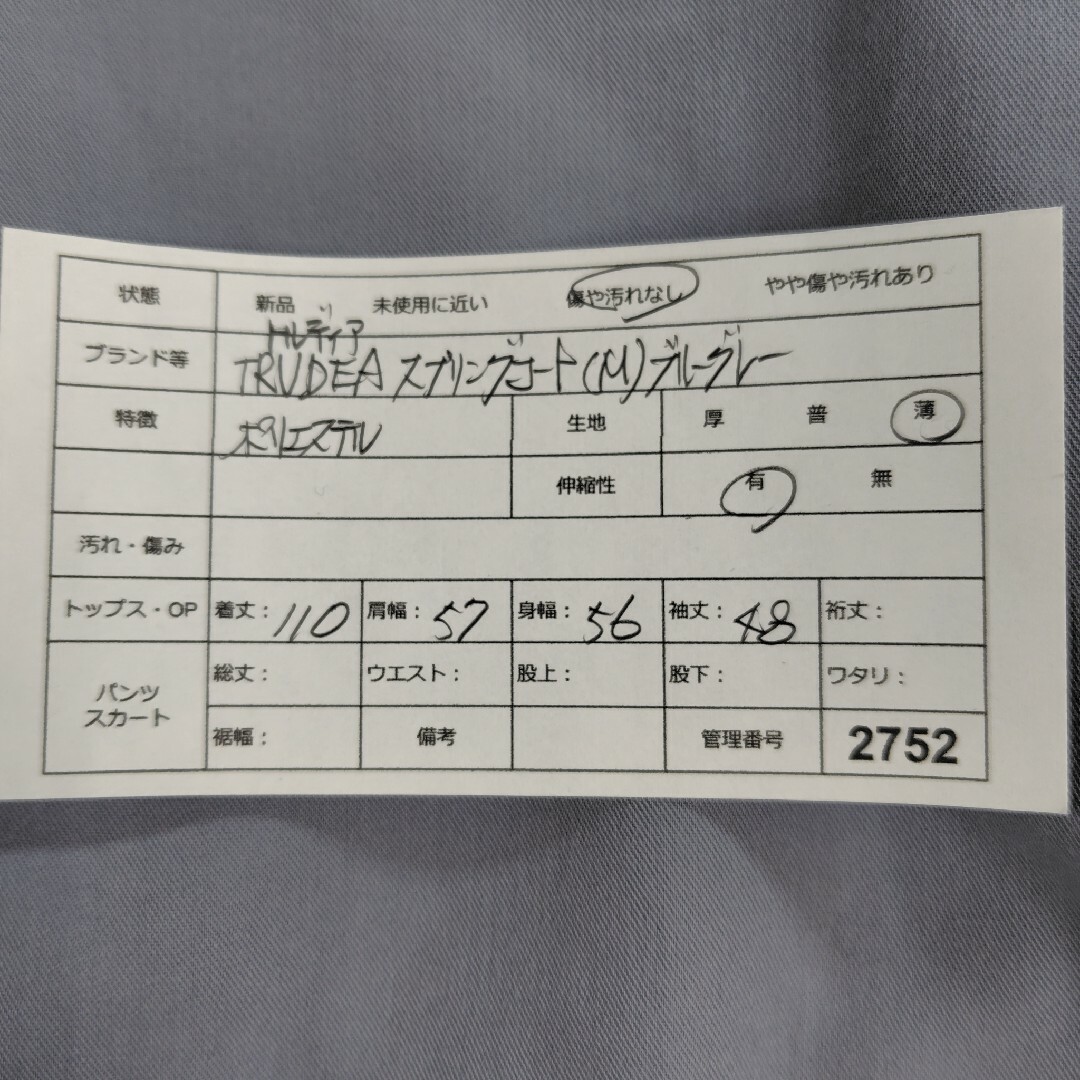 状態 新品 未使用に近い 傷や汚れなし やや傷や汚れあり
トルディア
ブランド等 TRUDEA スプリングコート(M)ブルーグレー
特徴 ポリエステル 生地 厚 普 薄
伸縮性 有 無
汚れ・傷み
トップス・OP 着丈：110 肩幅：57 身幅：56 袖丈：48 裄丈：
パンツ スカート 総丈： ウエスト： 股上： 股下： ワタリ：
裾幅： 備考 管理番号 2752